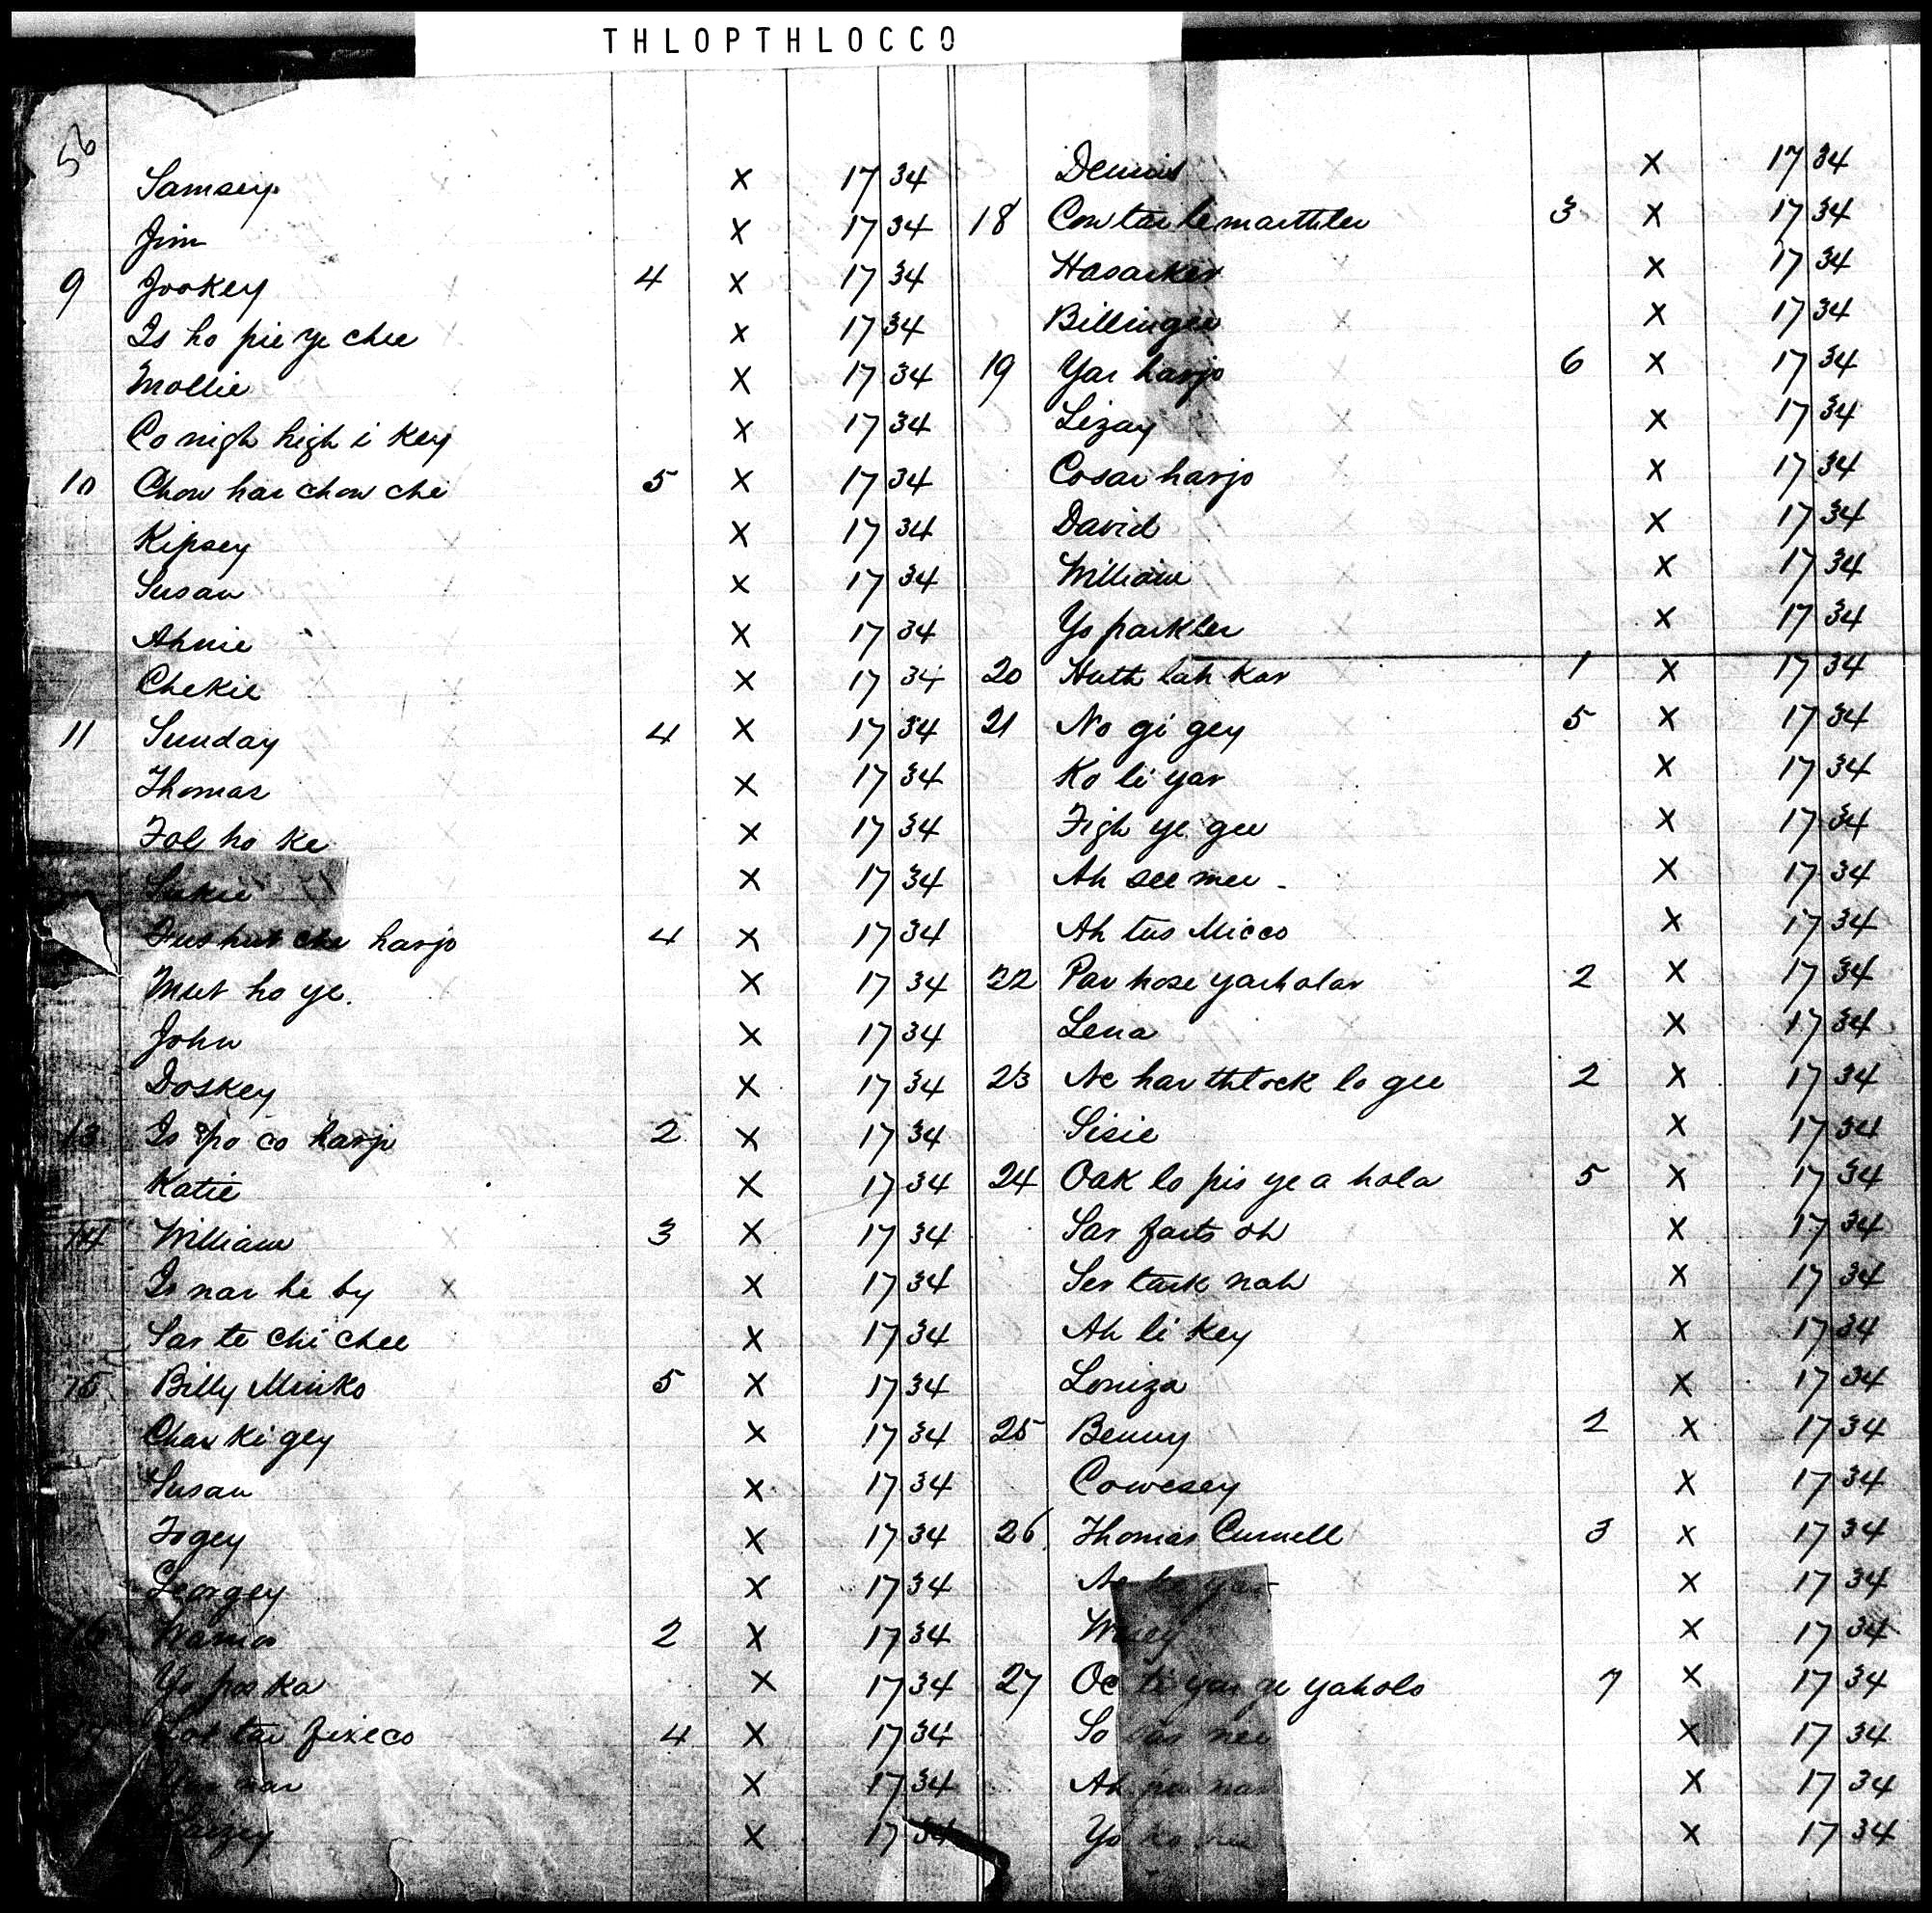 THLOPTHLOCCO
56
Samsey x 17 34
Jim x 17 34
9 Jookey 4 x 17 34
Is ho pie ye chee x 17 34
Mollie x 17 34
Co nigh high i Key x 17 34
10 Chow har chow che 5 x 17 34
Kipsey x 17 34
Susan x 17 34
Ahnie x 17 34
Chekie x 17 34
11 Sunday 4 x 17 34
Thomas x 17 34
Fol ho ke x 17 34
Sukie x 17 34
Fus hut che harjo 4 x 17 34
Mut ho ye. x 17 34
John x 17 34
Doskey x 17 34
13 Is po co harjo 2 x 17 34
Katie x 17 34
14 William 3 x 17 34
Is nar he by x x 17 34
Sar te chi chee x 17 34
15 Billy Minko 5 x 17 34
Char ki gey x 17 34
Susan x 17 34
Fogey x 17 34
Georgey x 17 34
16 2 x 17 34
Yo par ka x 17 34
17 tar fixeco 4 x 17 34
x 17 34
x 17 34
Dennis x 17 34
18 Cow tar le marthler 3 x 17 34
Hasarker x 17 34
Billingee x 17 34
19 Yar harjo 6 x 17 34
Lizay x 17 34
Cosar harjo x 17 34
David x 17 34
William x 17 34
Yo parkler x 17 34
20 Huth lah kar 1 x 17 34
21 No gi gey 5 x 17 34
Ko li yar x 17 34
Figh ye gee x 17 34
Ah see mee x 17 34
Ah tus Micco x 17 34
22 Par hose yarholar 2 x 17 34
Lena x 17 34
23 Ne har thlock lo gee 2 x 17 34
Sisie x 17 34
24 Oak lo pis ye a hola 5 x 17 34
Sar farts oh x 17 34
Ser tark nah x 17 34
Ah li key x 17 34
Loniza x 17 34
25 Benny 2 x 17 34
Cowesey x 17 34
26 Thomas Curnell 3 x 17 34
Ne ko yar x 17 34
Wisey x 17 34
27 Oc ti yar ge yaholo 7 x 17 34
So nee x 17 34
Ah par nar x 17 34
Yo ko x 17 34